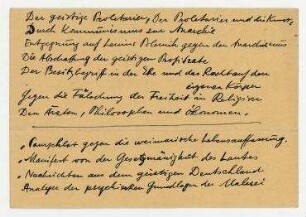 Der geistige Proletarier, Der Proletarier und die Kunst
Durch Kommunismus zur Anarchie
Entgegnung auf Lenins Polemik gegen den Anarchismus
Die Abschaffung der geistigen Profitrate
Der Besitzbegriff in der Ehe und das Recht auf den
eigenen Körper
Gegen die Fälschung der Freiheit in Religion
Den Ärzten, Philosophen und Ökonomen.
Pamphlet gegen die weimarische Lebensauffassung.
Manifest von der Gesetzmäßigkeit des Lautes
Nachrichten aus dem geistigen Deutschland
Analyse der psychischen Grundlagen der Malerei